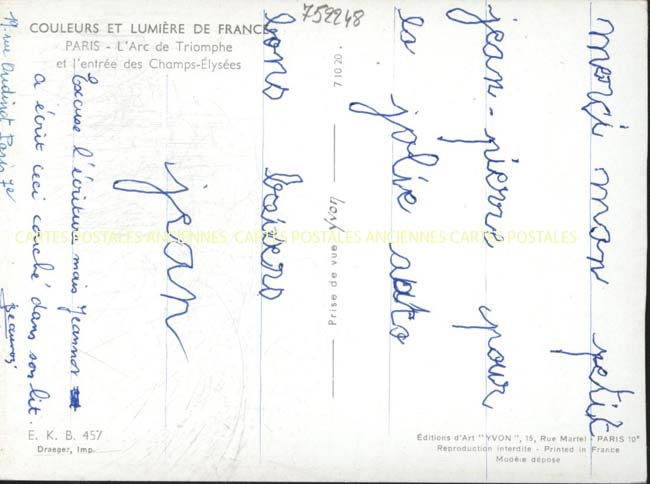 COULEURS ET LUMIÈRE DE FRANCE
PARIS - L'Arc de Triomphe
et l'entrée des Champs-Élysées
752248
merci mon petit
jean-pierre pour
la jolie auto
bons baisers
jean
Excuse l'écriture mais Jeannot
a écrit ceci couché dans son lit.
19. rue Oudinot Paris 7e
7 10 20 •
Prise de vue Yvon
CARTES POSTALES ANCIENNES CARTES POSTALES ANCIENNES CARTES POSTALES
E. K. B. 457
Draeger, Imp.
Éditions d'Art "YVON", 15, Rue Martel - PARIS 10e
Reproduction interdite - Printed in France
Modèle déposé